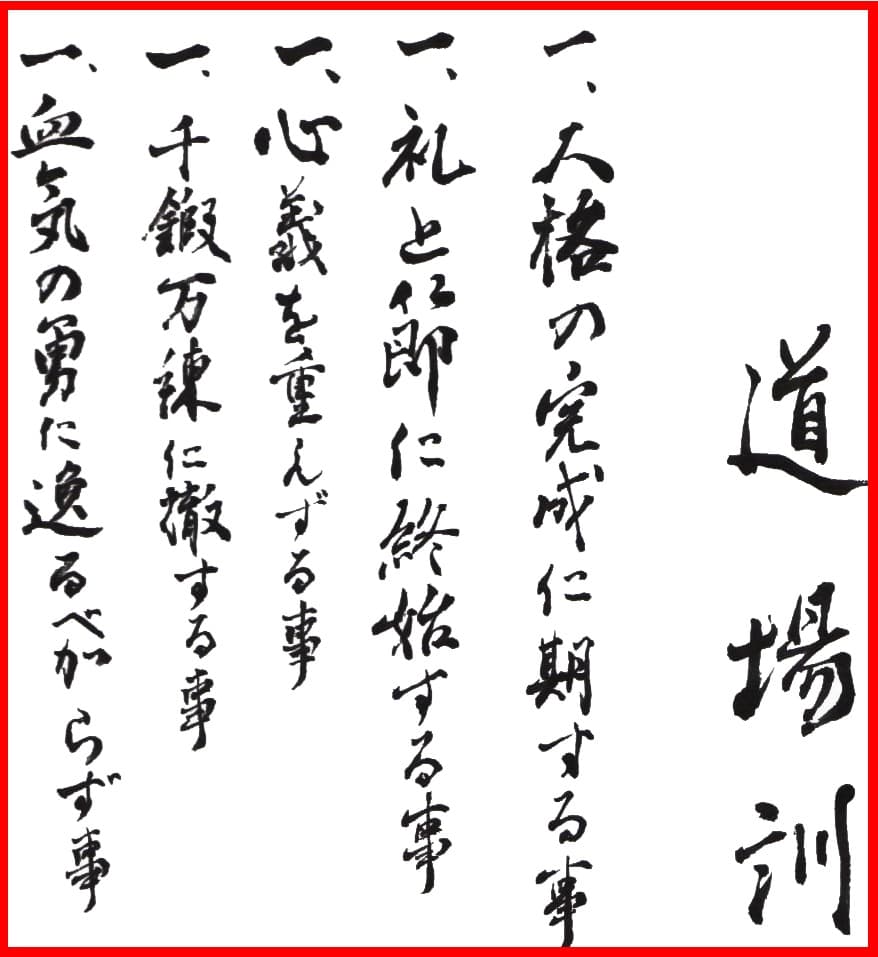 道場訓
一、人格の完成仁期する事
一、礼と節仁終始する事
一、心義を重んずる事
一、千鍛万練仁徹する事
一、血気の勇に逸るべからず事